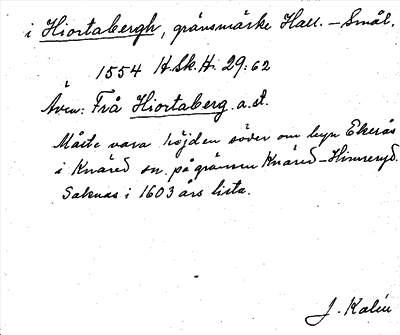 i Hiortabergh, gränsmärke Hall. – Smål.
1554 H.Sk.H. 29:62
Även: Frå Hiortaberg a.st.
Måste vara höjden söder om byn Ekerås
i Knäred sn. på gränsen Knäred–Hinneryd.
Saknas i 1603 års lista.
J. Kalén